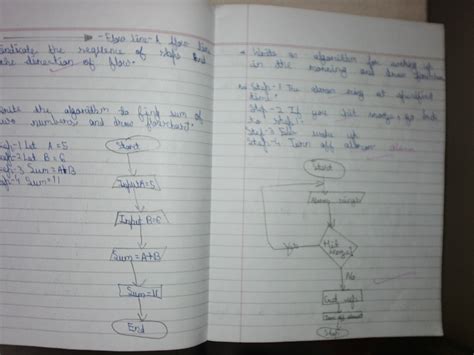 - Flow line - A flow line
indicate the sequence of steps and
the direction of flow.
Write the algorithm to find sum of
two numbers and draw flowchart.
Step-1 Let A=5
Step-2 Let B=6
Step-3 Sum=A+B
Step-4 Sum=11
Start
Input A=5
Input B=6
Sum=A+B
Sum=11
End
Write an algorithm for waking up
in the morning and draw flowchart
Step-1 The alarm ring at specified
time.
Step-2 If you hit snooze go back
to step-1
Step-3 wake up
Step-4 Turn off alarm alarm
Start
Alarm rings
Yes
Hit
No